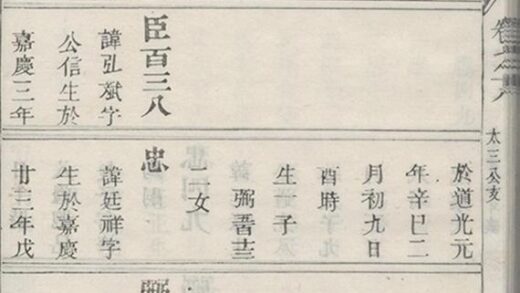 卷之六
太三公支
臣百三八
諱弘斌字
公信生於
嘉慶三年
於道光元
年辛巳二
月初九日
酉時
生一子
弼晋
二女
忠
諱廷祥字
生於嘉慶
廿三年戊